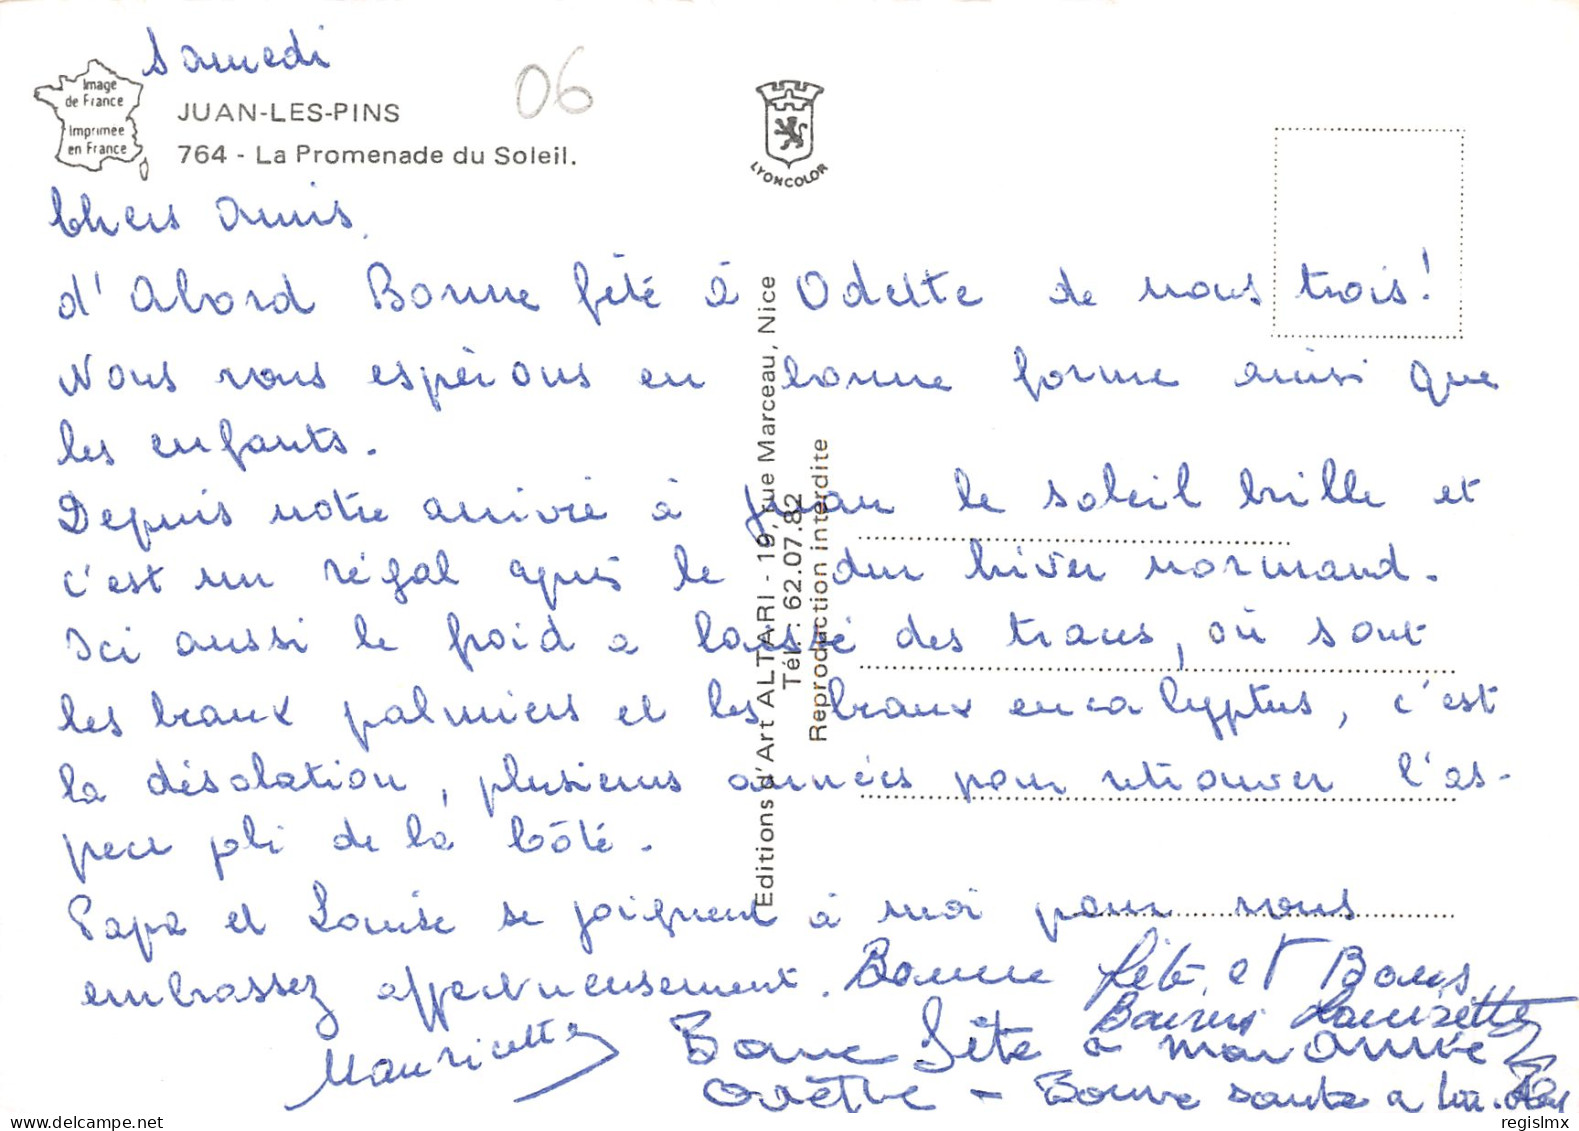 Samedi
06
Image
de France
Imprimée
en France
JUAN-LES-PINS
764 - La Promenade du Soleil.
LYONCOLOR
Chers amis,
d'abord Bonne fête à Odette de nous trois!
Nous vous espérons en bonne forme ainsi que
les enfants.
Depuis notre arrivée à Juan le soleil brille et
c'est un régal après le dur hiver normand.
Ici aussi le froid a laissé des traces, où sont
les beaux palmiers et les beaux eucalyptus, c'est
la désolation, plusieurs années pour retrouver l'as-
pect joli de la Côte.
Papa et Louise se joignent à moi pour vous
embrassez affectueusement. Bonne fête et Bons
Baisers Louisette
Mauricette
Bonne fête a mon amie
Odette - Bonne sante a
Editions d'Art ALTARI - 19, rue Marceau, Nice
Tél. : 62.07.82
Reproduction interdite
https://www.delcampe.net
regislmx